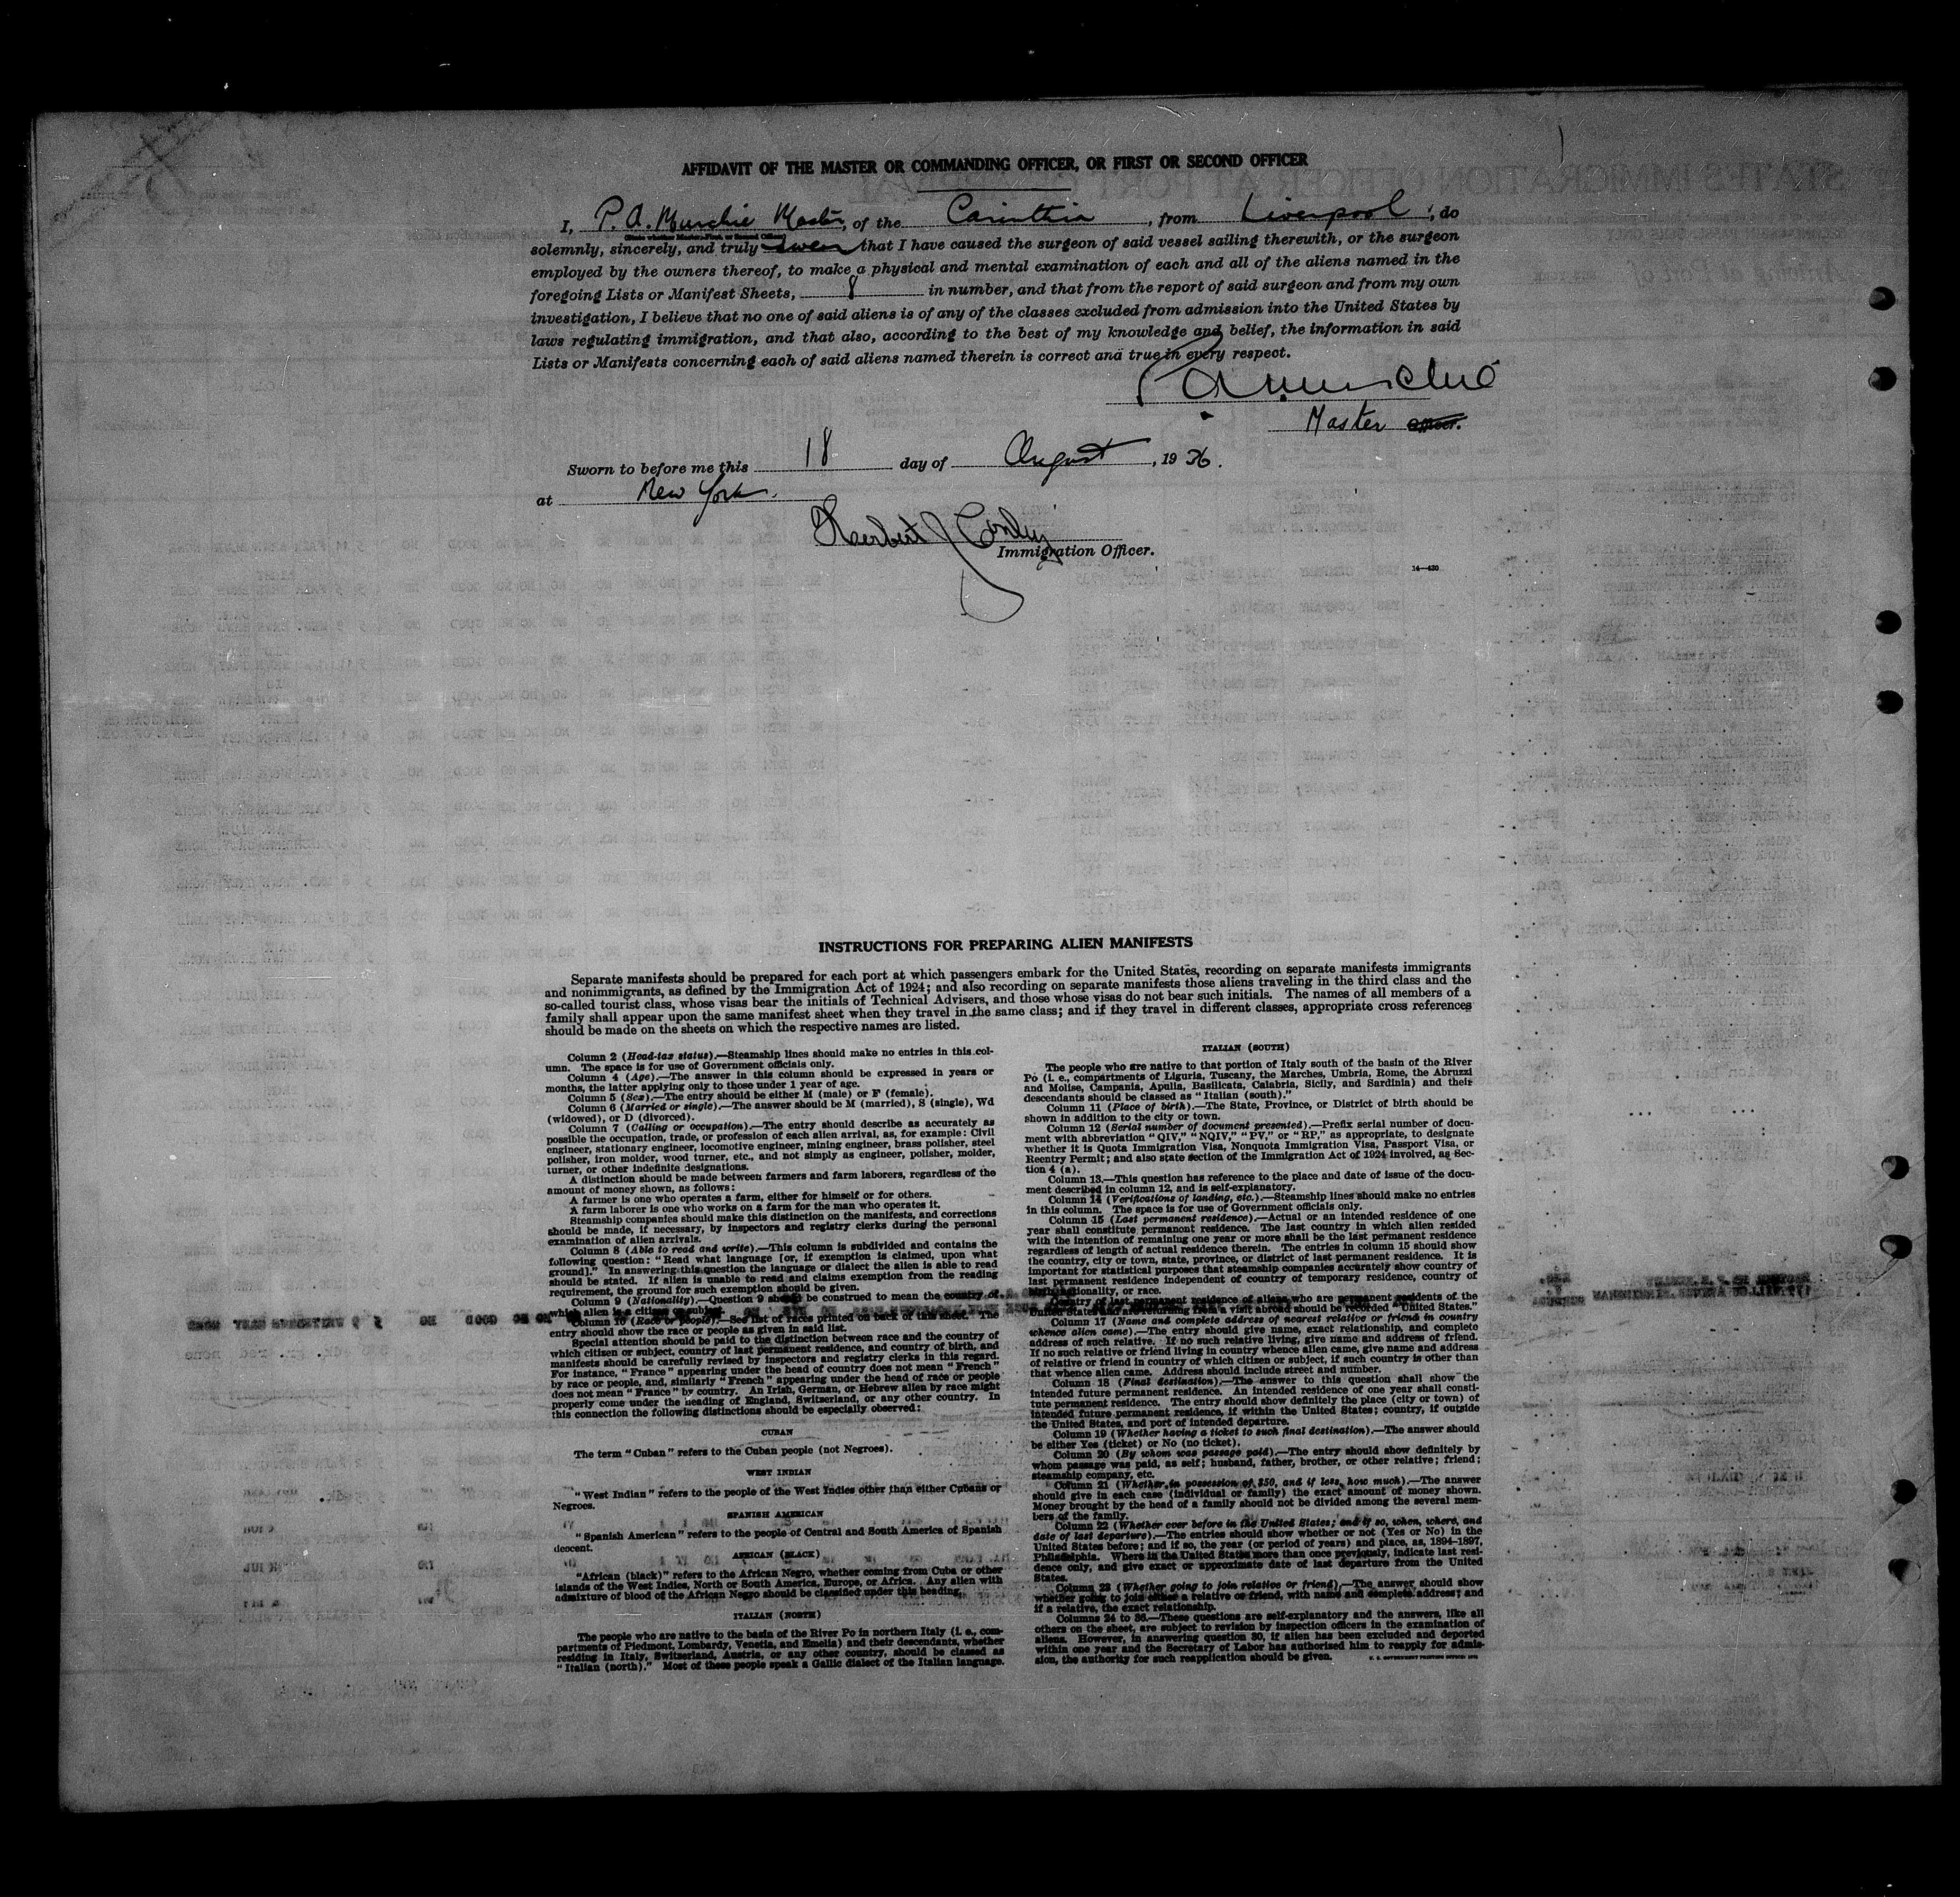 AFFIDAVIT OF THE MASTER OR COMMANDING OFFICER, OR FIRST OR SECOND OFFICER
I, P. A. Murchie Master, of the Carinthia, from Liverpool, do
(State whether Master, First, or Second Officer)
solemnly, sincerely, and truly swear that I have caused the surgeon of said vessel sailing therewith, or the surgeon
employed by the owners thereof, to make a physical and mental examination of each and all of the aliens named in the
foregoing Lists or Manifest Sheets, 8 in number, and that from the report of said surgeon and from my own
investigation, I believe that no one of said aliens is of any of the classes excluded from admission into the United States by
laws regulating immigration, and that also, according to the best of my knowledge and belief, the information in said
Lists or Manifests concerning each of said aliens named therein is correct and true in every respect.
P A Murchie
Master Officer.
Sworn to before me this 18 day of August, 1936.
at New York.
Herbert J Conley
Immigration Officer.
14—430
INSTRUCTIONS FOR PREPARING ALIEN MANIFESTS
Separate manifests should be prepared for each port at which passengers embark for the United States, recording on separate manifests immigrants
and nonimmigrants, as defined by the Immigration Act of 1924; and also recording on separate manifests those aliens traveling in the third class and the
so-called tourist class, whose visas bear the initials of Technical Advisers, and those whose visas do not bear such initials. The names of all members of a
family shall appear upon the same manifest sheet when they travel in the same class; and if they travel in different classes, appropriate cross references
should be made on the sheets on which the respective names are listed.
Column 2 (Head-tax status).—Steamship lines should make no entries in this col-
umn. The space is for use of Government officials only.
Column 4 (Age).—The answer in this column should be expressed in years or
months, the latter applying only to those under 1 year of age.
Column 5 (Sex).—The entry should be either M (male) or F (female).
Column 6 (Married or single).—The answer should be M (married), S (single), Wd
(widowed), or D (divorced).
Column 7 (Calling or occupation).—The entry should describe as accurately as
possible the occupation, trade, or profession of each alien arrival, as, for example: Civil
engineer, stationary engineer, locomotive engineer, mining engineer, brass polisher, steel
polisher, iron molder, wood turner, etc., and not simply as engineer, polisher, molder,
turner, or other indefinite designations.
A distinction should be made between farmers and farm laborers, regardless of the
amount of money shown, as follows:
A farmer is one who operates a farm, either for himself or for others.
A farm laborer is one who works on a farm for the man who operates it.
Steamship companies should make this distinction on the manifests, and corrections
should be made, if necessary, by inspectors and registry clerks during the personal
examination of alien arrivals.
Column 8 (Able to read and write).—This column is subdivided and contains the
following question: "Read what language [or, if exemption is claimed, upon what
ground]." In answering this question the language or dialect the alien is able to read
should be stated. If alien is unable to read and claims exemption from the reading
requirement, the ground for such exemption should be given.
Column 9 (Nationality).—Question 9 should be construed to mean the country of
which alien is a citizen or subject.
Column 10 (Race or people).—See list of races printed on back of this sheet. The
entry should show the race or people as given in said list.
Special attention should be paid to the distinction between race and the country of
which citizen or subject, country of last permanent residence, and country of birth, and
manifests should be carefully revised by inspectors and registry clerks in this regard.
For instance, "France" appearing under the head of country does not mean "French"
by race or people, and, similarly "French" appearing under the head of race or people
does not mean "France" by country. An Irish, German, or Hebrew alien by race might
properly come under the heading of England, Switzerland, or any other country. In
this connection the following distinctions should be especially observed:
CUBAN
The term "Cuban" refers to the Cuban people (not Negroes).
WEST INDIAN
"West Indian" refers to the people of the West Indies other than either Cubans or
Negroes.
SPANISH AMERICAN
"Spanish American" refers to the people of Central and South America of Spanish
descent.
AFRICAN (BLACK)
"African (black)" refers to the African Negro, whether coming from Cuba or other
islands of the West Indies, North or South America, Europe, or Africa. Any alien with
admixture of blood of the African Negro should be classified under this heading.
ITALIAN (NORTH)
The people who are native to the basin of the River Po in northern Italy (i. e., com-
partments of Piedmont, Lombardy, Venetia, and Emelia) and their descendants, whether
residing in Italy, Switzerland, Austria, or any other country, should be classed as
"Italian (north)." Most of these people speak a Gallic dialect of the Italian language.
ITALIAN (SOUTH)
The people who are native to that portion of Italy south of the basin of the River
Po (i. e., compartments of Liguria, Tuscany, the Marches, Umbria, Rome, the Abruzzi
and Molise, Campania, Apulia, Basilicata, Calabria, Sicily, and Sardinia) and their
descendants should be classed as "Italian (south)."
Column 11 (Place of birth).—The State, Province, or District of birth should be
shown in addition to the city or town.
Column 12 (Serial number of document presented).—Prefix serial number of docu-
ment with abbreviation "QIV," "NQIV," "PV," or "RP," as appropriate, to designate
whether it is Quota Immigration Visa, Nonquota Immigration Visa, Passport Visa, or
Reentry Permit; and also state section of the Immigration Act of 1924 involved, as Sec-
tion 4 (a).
Column 13.—This question has reference to the place and date of issue of the docu-
ment described in column 12, and is self-explanatory.
Column 14 (Verifications of landing, etc.).—Steamship lines should make no entries
in this column. The space is for use of Government officials only.
Column 15 (Last permanent residence).—Actual or an intended residence of one
year shall constitute permanent residence. The last country in which alien resided
with the intention of remaining one year or more shall be the last permanent residence
regardless of length of actual residence therein. The entries in column 15 should show
the country, city or town, state, province, or district of last permanent residence. It is
important for statistical purposes that steamship companies accurately show country of
last permanent residence independent of country of temporary residence, country of
birth, nationality, or race.
Country of last permanent residence of aliens who are permanent residents of the
United States and are returning from a visit abroad should be recorded "United States."
Column 17 (Name and complete address of nearest relative or friend in country
whence alien came).—The entry should give name, exact relationship, and complete
address of such relative. If no such relative living, give name and address of friend.
If no such relative or friend living in country whence alien came, give name and address
of relative or friend in country of which citizen or subject, if such country is other than
that whence alien came. Address should include street and number.
Column 18 (Final destination).—The answer to this question shall show the
intended future permanent residence. An intended residence of one year shall consti-
tute permanent residence. The entry should show definitely the place (city or town) of
intended future permanent residence, if within the United States; country, if outside
the United States, and port of intended departure.
Column 19 (Whether having a ticket to such final destination).—The answer should
be either Yes (ticket) or No (no ticket).
Column 20 (By whom was passage paid).—The entry should show definitely by
whom passage was paid, as self; husband, father, brother, or other relative; friend;
steamship company, etc.
Column 21 (Whether in possession of $50, and if less, how much).—The answer
should give in each case (individual or family) the exact amount of money shown.
Money brought by the head of a family should not be divided among the several mem-
bers of the family.
Column 22 (Whether ever before in the United States; and if so, when, where, and
date of last departure).—The entries should show whether or not (Yes or No) in the
United States before; and if so, the year (or period of years) and place, as, 1894-1897,
Philadelphia. Where in the United States more than once previously, indicate last resi-
dence only, and give exact or approximate date of last departure from the United
States.
Column 23 (Whether going to join relative or friend).—The answer should show
whether going to join either a relative or friend, with name and complete address; and
if a relative, the exact relationship.
Columns 24 to 36.—These questions are self-explanatory and the answers, like all
others on the sheet, are subject to revision by inspection officers in the examination of
aliens. However, in answering question 30, if alien has been excluded and deported
within one year and the Secretary of Labor has authorised him to reapply for admis-
sion, the authority for such reapplication should be given.
U. S. GOVERNMENT PRINTING OFFICE